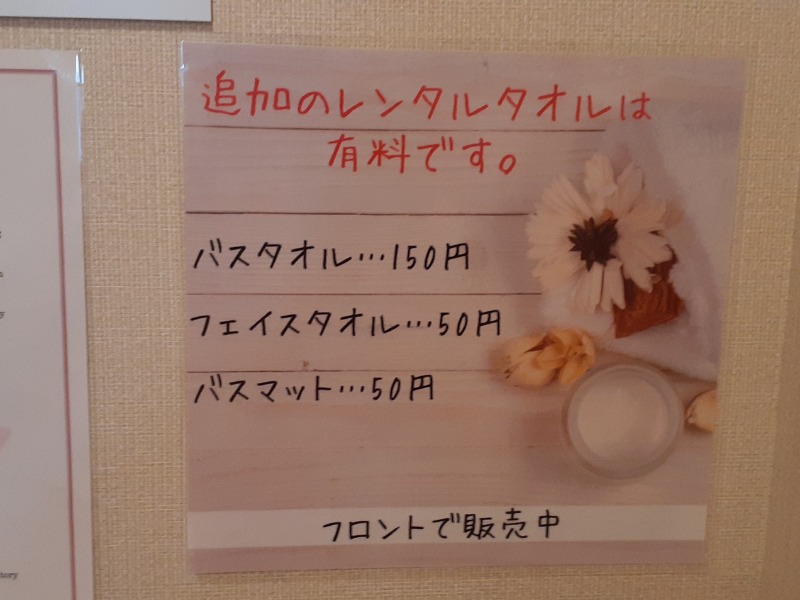 追加のレンタルタオルは
有料です。
バスタオル…150円
フェイスタオル…50円
バスマット…50円
フロントで販売中
tory